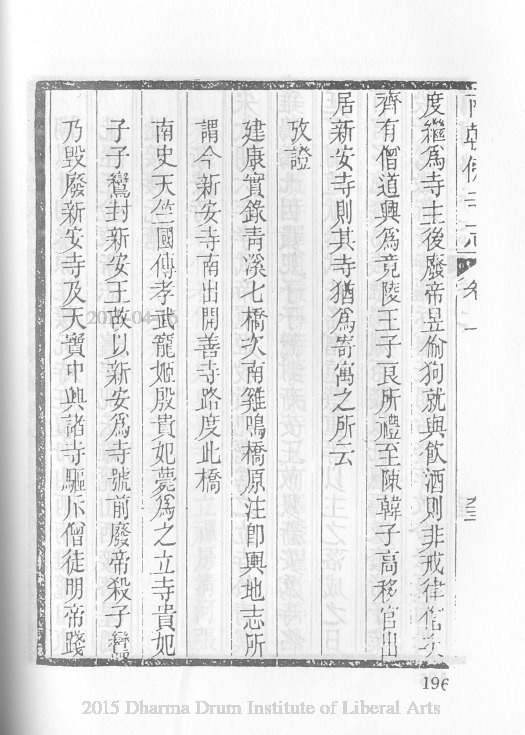 南朝佛寺志 卷上
度繼爲寺主後廢帝昱偷狗就與飲酒則非戒律僧矣
齊有僧道興爲竟陵王子良所禮至陳韓子高移官出
居新安寺則其寺猶爲寄寓之所云
攷證
建康實錄青溪七橋次南雞鳴橋原注卽輿地志所
謂今新安寺南出開善寺路度此橋
南史天竺國傳孝武寵姬殷貴妃薨爲之立寺貴妃
子子鸞封新安王故以新安爲寺號前廢帝殺子鸞
乃毀廢新安寺及天寶中興諸寺驅斥僧徒明帝踐
196
2015 Dharma Drum Institute of Liberal Arts